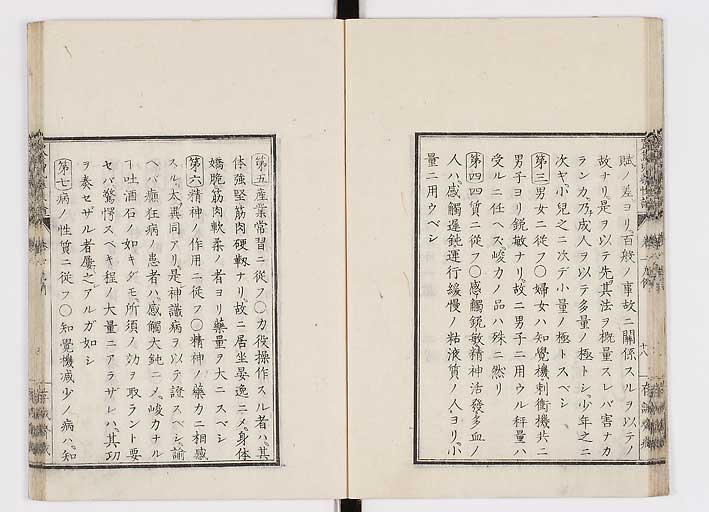 賦ノ差ヨリ、百般ノ事故ニ關係スルヲ以テノ
故ナリ、是ヲ以テ先其法ヲ概量スレバ害ナカ
ランカ、乃成人ヲ以テ多量ノ極トシ、少年之ニ
次ギ小兒之ニ次デ小量ノ極トスベシ
第三男女ニ從フ〇婦女ハ知覺機刺衝機共ニ
男子ヨリ鋭敏ナリ、故ニ男子ニ用ウル秤量ハ
受ルニ任ヘズ峻力ノ品ハ殊ニ然リ
第四四質ニ從フ〇感觸鋭敏精神活發多血ノ
人ハ感觸遲鈍運行緩慢ノ粘液質ノ人ヨリ、小
量ニ用ウベシ
第五産業常習ニ從フ〇力役操作スル者ハ、其
体強堅筋肉硬靱ナリ、故ニ居坐晏逸ニメ、身体
嬌脆筋肉軟柔ノ者ヨリ藥量ヲ大ニスベシ
第六精神ノ作用ニ從フ〇精神ノ藥力ニ相感
スル、太異同アリ、是神識病ヲ以テ證スベシ、諭
ヘバ癲狂病ノ患者ハ、感觸大鈍ニメ、峻力ナル
吐酒石ノ如キダモ所須ノ効ヲ取ラント要
セバ驚愕スベキ程ノ大量ニアラザレハ、其功
ヲ奏セザル者屢之アルガ如シ
第七病ノ性質ニ從フ〇知覺機減少ノ病ハ、知